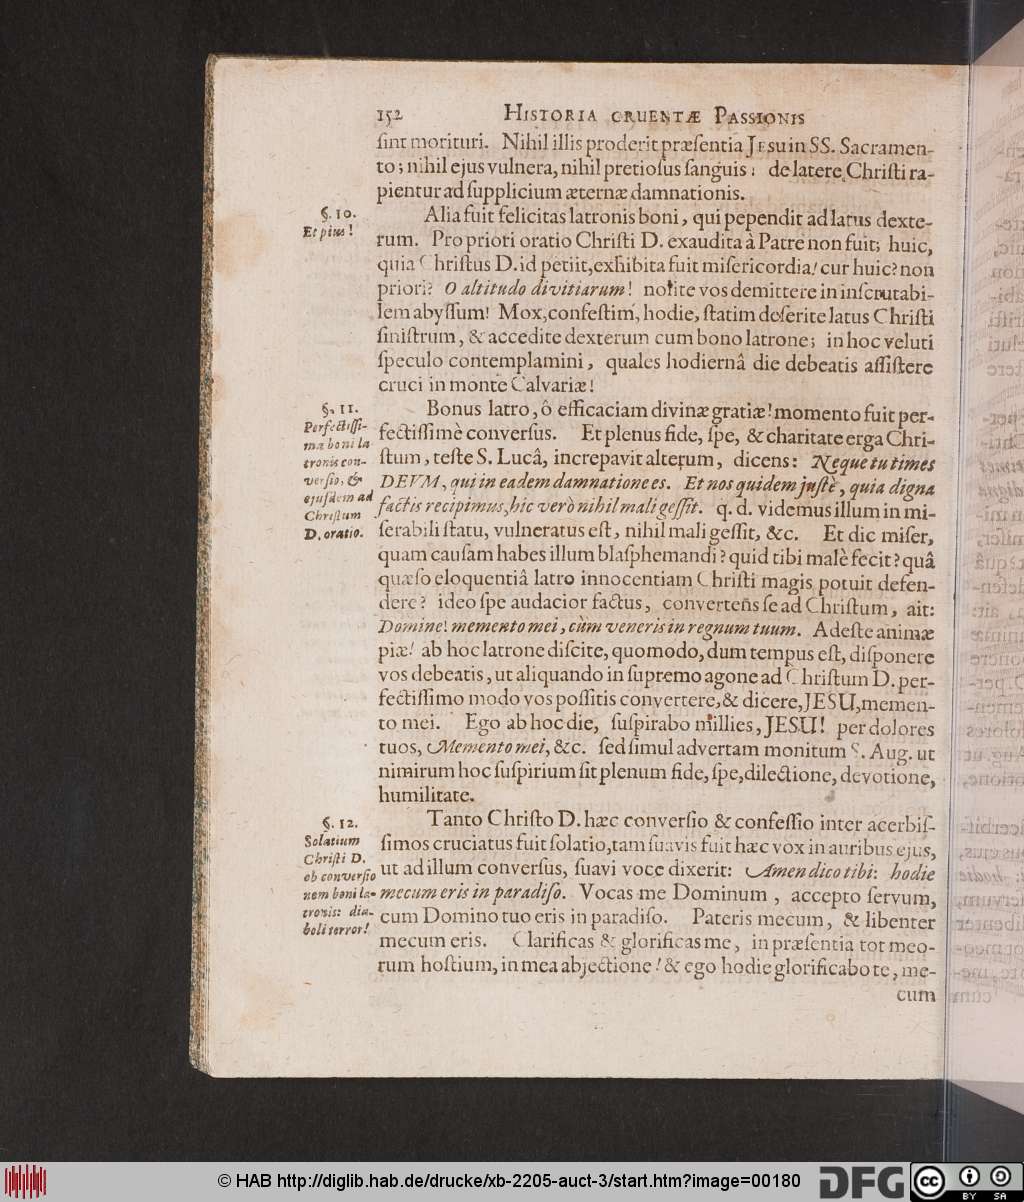 152 HISTORIA CRUENTÆ PASSIONIS
ſint morituri. Nihil illis proderit præſentia JESU in SS. Sacramen-
to; nihil ejus vulnera, nihil pretioſus ſanguis: de latere Chriſti ra-
pientur ad ſupplicium æternæ damnationis.
§. 10.
Et pius!
Alia fuit felicitas latronis boni, qui pependit ad latus dexte-
rum. Pro priori oratio Chriſti D. exaudita à Patre non fuit; huic,
quia Chriſtus D. id petiit, exhibita fuit miſericordia! cur huic? non
priori? O altitudo divitiarum! nolite vos demittere in inſcrutabi-
lem abyſſum! Mox, confeſtim, hodie, ſtatim deſerite latus Chriſti
ſiniſtrum, & accedite dexterum cum bono latrone; in hoc veluti
ſpeculo contemplamini, quales hodiernâ die debeatis aſſiſtere
cruci in monte Calvariæ!
§. 11.
Perfectiſſi-
ma boni la
tronis con-
verſio, &
ejuſdem ad
Chriſtum
D. oratio.
Bonus latro, ô efficaciam divinæ gratiæ! momento fuit per-
fectiſſimè converſus. Et plenus fide, ſpe, & charitate erga Chri-
ſtum, teſte S. Lucâ, increpavit alterum, dicens: Neque tu times
DEVM, qui in eadem damnatione es. Et nos quidem juſtè, quia digna
factis recipimus, hic verò nihil mali geſſit. q. d. videmus illum in mi-
ſerabili ſtatu, vulneratus eſt, nihil mali geſſit, &c. Et dic miſer,
quam cauſam habes illum blaſphemandi? quid tibi malè fecit? quâ
quæſo eloquentiâ latro innocentiam Chriſti magis potuit defen-
dere? ideo ſpe audacior factus, convertens ſe ad Chriſtum, ait:
Domine! memento mei, cùm veneris in regnum tuum. Adeſte animæ
piæ! ab hoc latrone diſcite, quomodo, dum tempus eſt, diſponere
vos debeatis, ut aliquando in ſupremo agone ad Chriſtum D. per-
fectiſſimo modo vos poſſitis convertere, & dicere, JESU, memen-
to mei. Ego ab hoc die, ſuſpirabo millies, JESU! per dolores
tuos, Memento mei, &c. ſed ſimul advertam monitum S. Aug. ut
nimirum hoc ſuſpirium ſit plenum fide, ſpe, dilectione, devotione,
humilitate.
§. 12.
Solatium
Chriſti D.
ob converſio
nem boni la-
tronis: dia-
boli terror!
Tanto Chriſto D. hæc converſio & confeſſio inter acerbiſ-
ſimos cruciatus fuit ſolatio, tam ſuavis fuit hæc vox in auribus ejus,
ut ad illum converſus, ſuavi voce dixerit: Amen dico tibi: hodie
mecum eris in paradiſo. Vocas me Dominum, accepto ſervum,
cum Domino tuo eris in paradiſo. Pateris mecum, & libenter
mecum eris. Clarificas & glorificas me, in præſentia tot meo-
rum hoſtium, in mea abjectione! & ego hodie glorificabo te, me-
cum
© HAB http://diglib.hab.de/drucke/xb-2205-auct-3/start.htm?image=00180
DFG
cc
BY SA